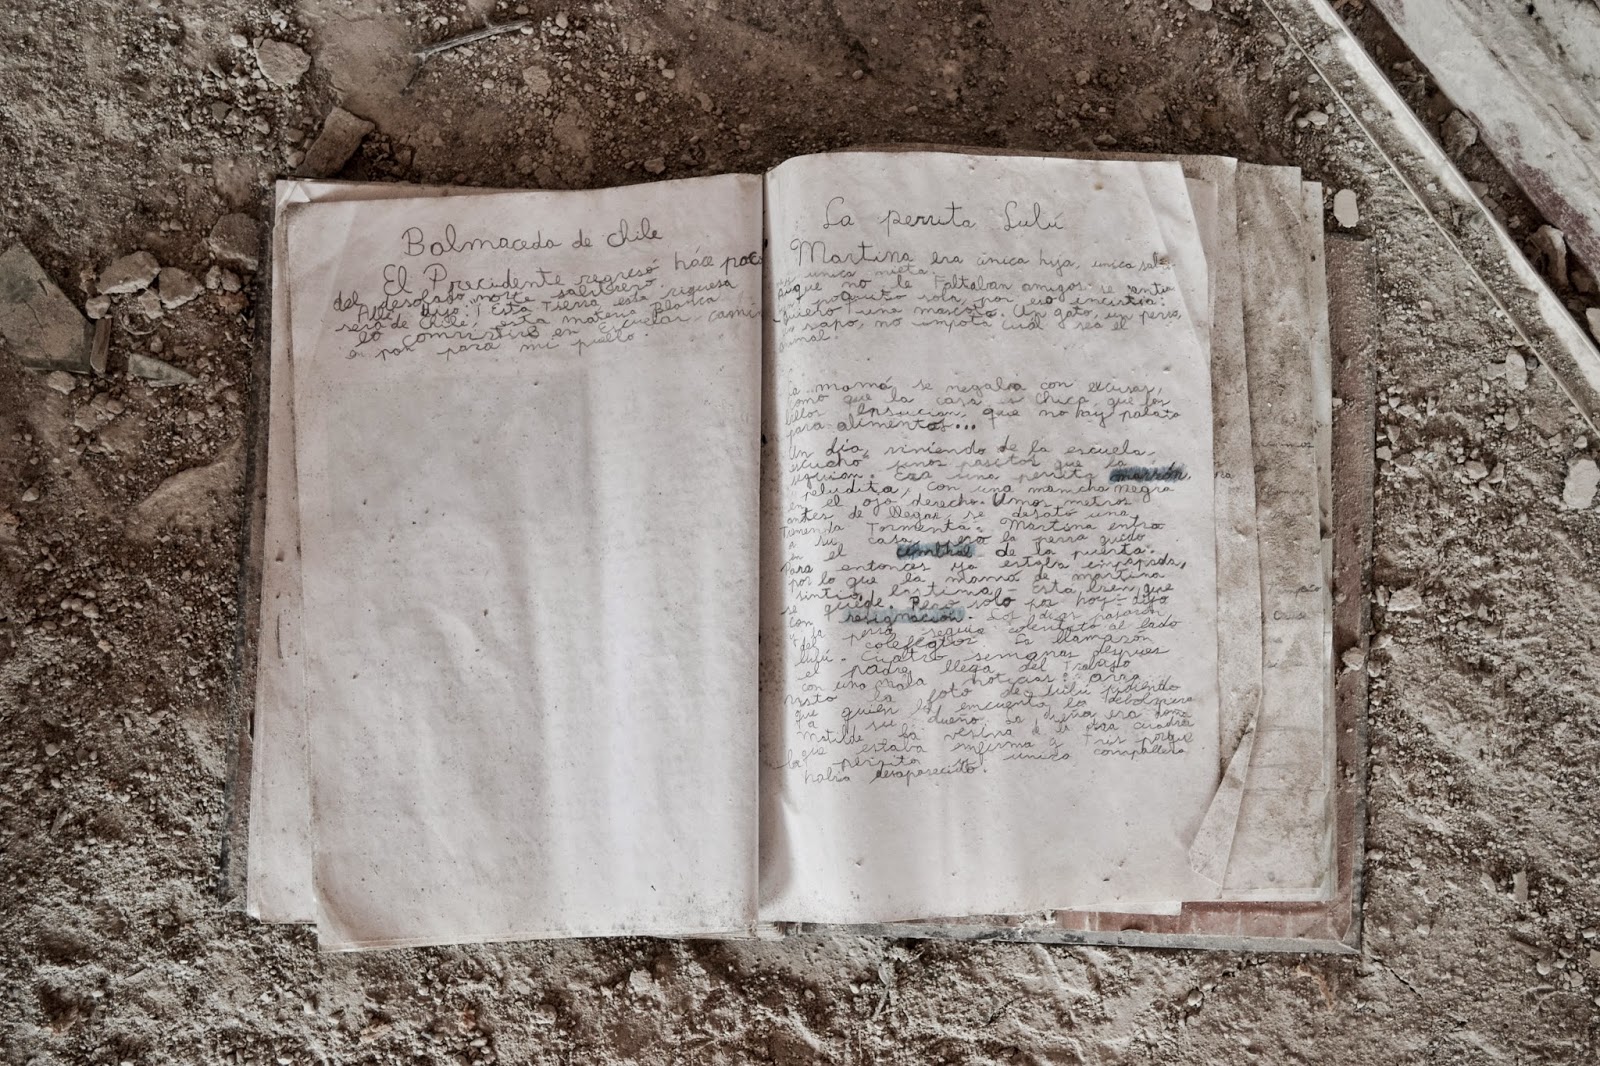 Balmaceda de Chile
El Precidente regresó hace poco
del desolado norte salitrero.
Allá dijo: "Esta Tierra esta riquesa
será de Chile, esta materia blanca
la convertiré en Escuelas, cami
en pan para mi pueblo.
La perrita Lulú
Martina era única hija, unica sobri
unica nieta.
Auque no le Faltaban amigos se sentia
un poquito sola, por eso incistia:
Quiero una mascota. Un gato, un perro,
un sapo, no impota cuál sea el
animal.
La mamá se negaba con excusas,
como que la casa es chica, que
que no hay palata
para alimentos...
Un dia, viniendo de la escuela,
escucho unos pasitos que la
seguian. Era una perrita marrón,
peludita, con una mancha negra
en el ojo derecho. Unos metros
antes de llegar, se desató una
tremenda Tormenta. Martina entró
a su casa, pero la perra quedo
en el umbral de la puerta.
Para entonces ya estaba empapada,
por lo que la mamá de martina
sintió lastima. - Está bien, que
se quede. Pero solo por hoy - dijo
con resignación. Los dias pasaron
y la perra seguia
del colefgios. La llamaron
lulú. Cuatro semanas despues
el padre llega del Trabajo
con una mala noticias:
visto la foto de lulú pidiendo
que quien la encuentre la
a su dueño. La dueña era doña
Matilde la vesina de la otra cuadra
que estaba enferma y Triste porque
la perrita su unica compañera
habia desaparecido.